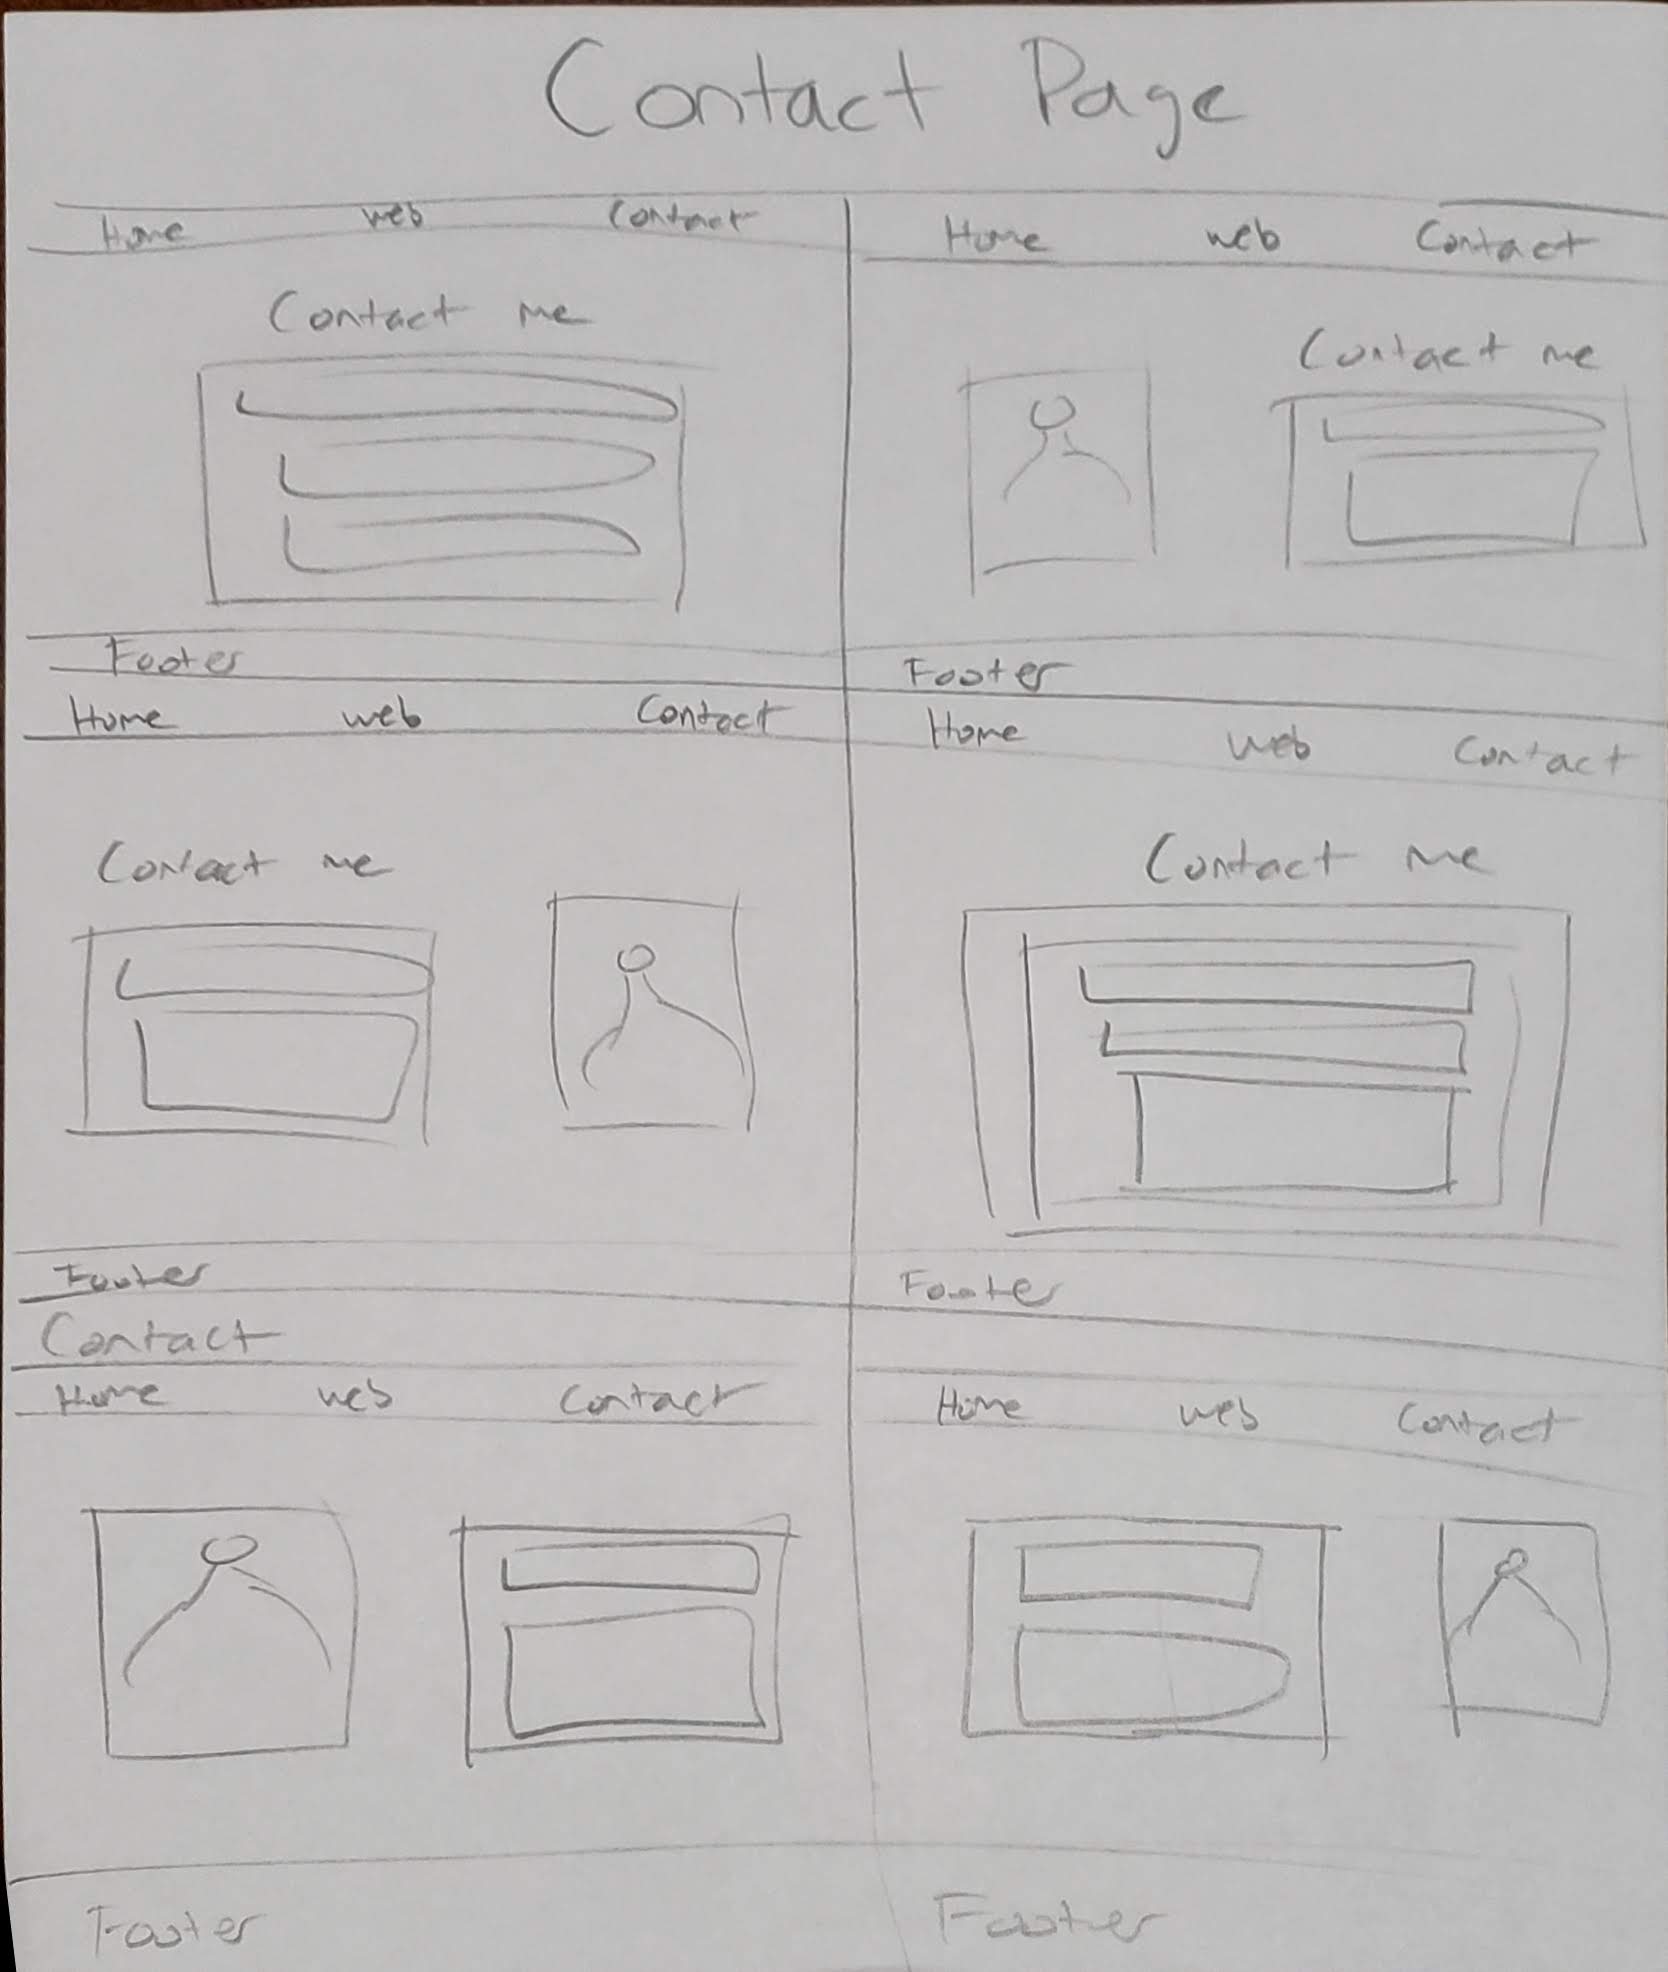 Contact Page
Home web Contact
Contact me
Footer
Home web Contact
Contact me
Footer
Home web Contact
Contact me
Footer
Home web Contact
Contact me
Footer
Contact
Home web Contact
Footer
Home web Contact
Footer